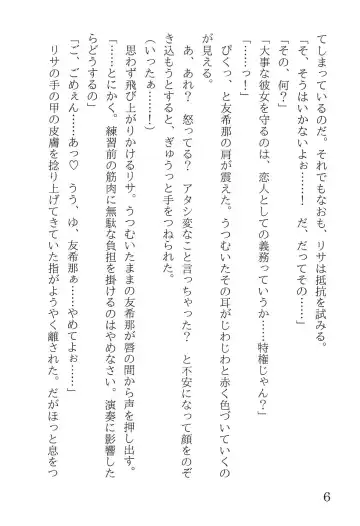 てしまっているのだ。それでもなおも、リサは抵抗を試みる。
「そ、そうはいかないよぉ……！　だ、だってその……」
「その、何？」
「大事な彼女を守るのは、恋人としての義務っていうか……特権じゃん？」
「……っ！」
びくっ、と友希那の肩が震えた。うつむいたその耳がじわじわと赤く色づいていくの
が見える。
あ、あれ？　怒ってる？　アタシ変なこと言っちゃった？　と不安になって顔をのぞ
き込もうとすると、ぎゅうっと手をつねられた。
（いったぁ……！）
思わず飛び上がりかけるリサ。うつむいたままの友希那が唇の間から声を押し出す。
「……とにかく。練習前の筋肉に無駄な負担を掛けるのはやめなさい。演奏に影響した
らどうするの」
「ご、ごめぇん……あっ♡　うう、ゆ、友希那ぁ……やめてよぉ……」
リサの手の甲の皮膚を捻り上げてきていた指がようやく離された。だがほっと息をつ
6